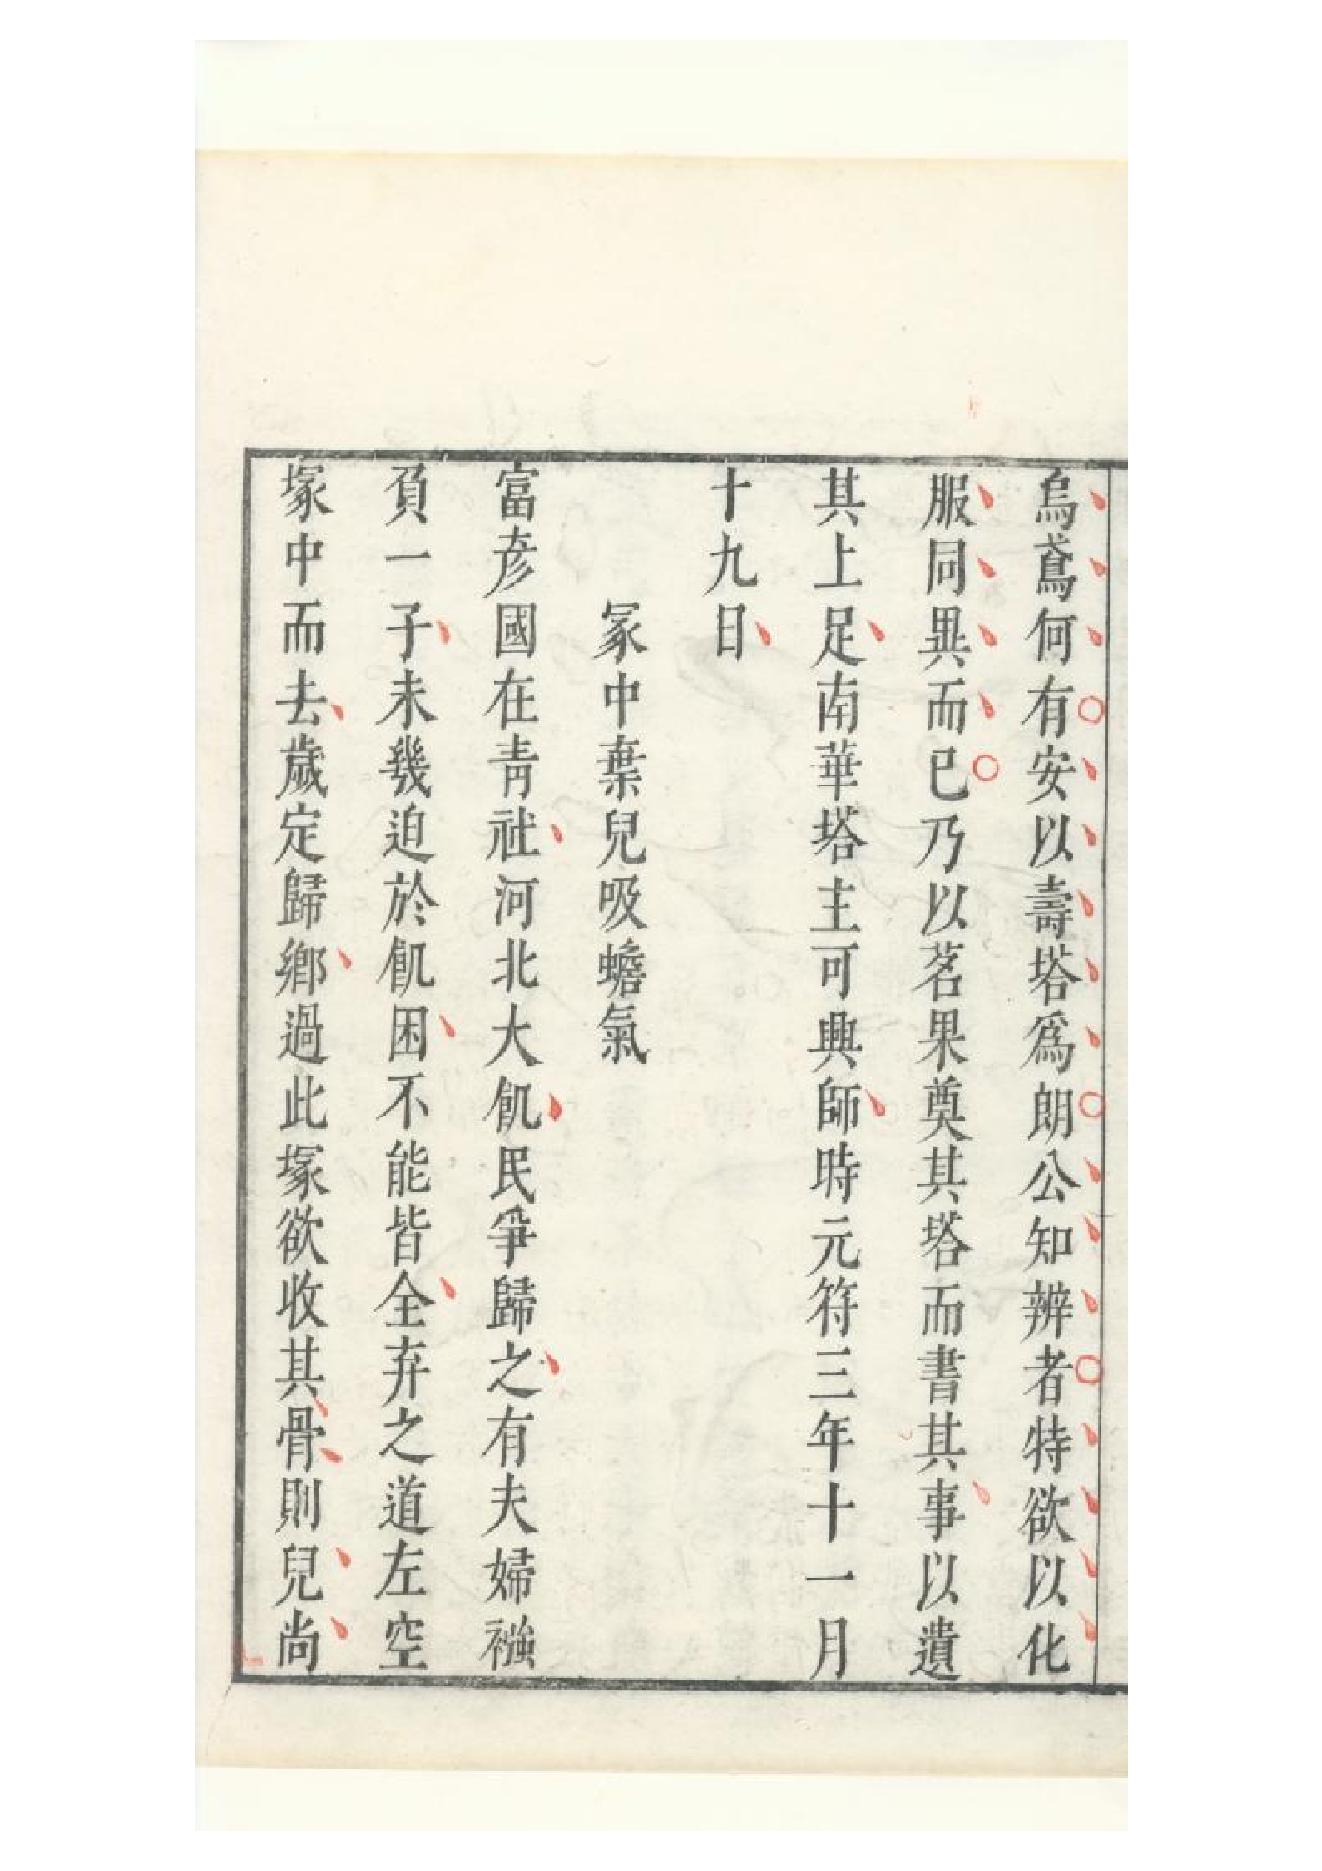 烏鳶何有安以壽塔爲朗公知辨者特欲以化
服同異而已乃以茗果奠其塔而書其事以遺
其上足南華塔主可興師時元符三年十一月
十九日
冢中棄兒吸蟾氣
富彥國在靑社河北大飢民爭歸之有夫婦襁
負一子未幾迫於飢困不能皆全弃之道左空
塚中而去歲定歸鄉過此塚欲收其骨則兒尚